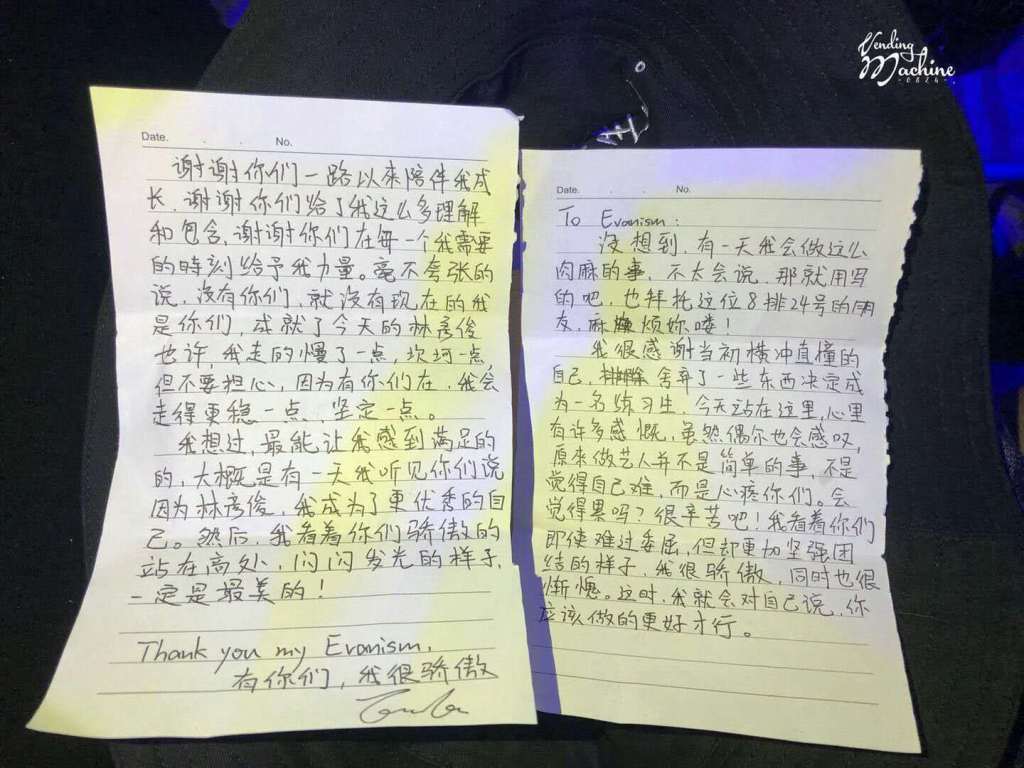 Vending
Machine
-0824-
Date. . . No.
To Evanism:
没想到,有一天我会做这么
肉麻的事,不太会说,那就用写
的吧,也拜托这位8排24号的朋
友,麻烦妳喽!
我很感谢当初横冲直撞的
自己,舍弃了一些东西决定成
为一名练习生,今天站在这里,心里
有许多感慨,虽然偶尔也会感叹,
原来做艺人并不是简单的事,不是
觉得自己难,而是心疼你们。会
觉得累吗?很辛苦吧!我看着你们
即使难过委屈,但却更加坚强团
结的样子,我很骄傲,同时也很
惭愧。这时,我就会对自己说,你
应该做的更好才行。
Date. . . No.
谢谢你们一路以来陪伴我成
长,谢谢你们给了我这么多理解
和包含,谢谢你们在每一个我需要
的時刻给予我力量。毫不夸张的
说,没有你们,就没有现在的我
是你们,成就了今天的林彦俊
也许,我走的慢了一点,坎坷一点,
但不要担心,因为有你们在,我会
走得更稳一点、坚定一点。
我想过,最能让我感到满足的
的,大概是有一天我听见你们说
因为林彦俊,我成为了更优秀的自
己。然后,我看着你们骄傲的
站在高处,闪闪发光的样子,
一定是最美的!
Thank you my Evanism.
有你们,我很骄傲